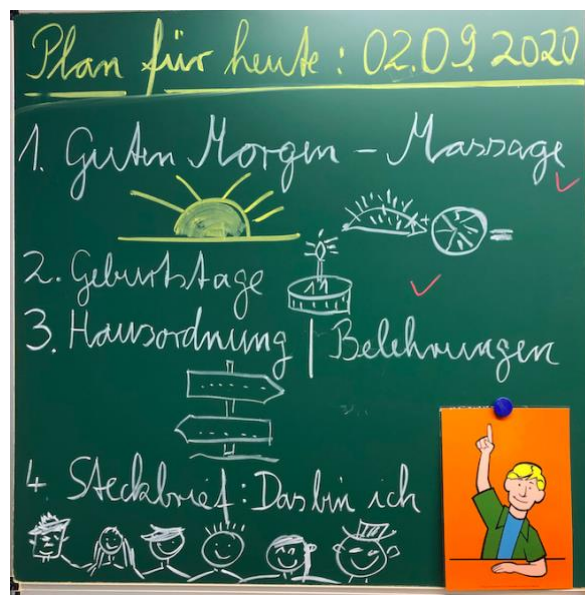 Plan für heute: 02.09.2020
1. Guten Morgen - Massage
2. Geburtstage
11
3. Hausordnung | Belehrungen
4 Steckbrief: Das bin ich